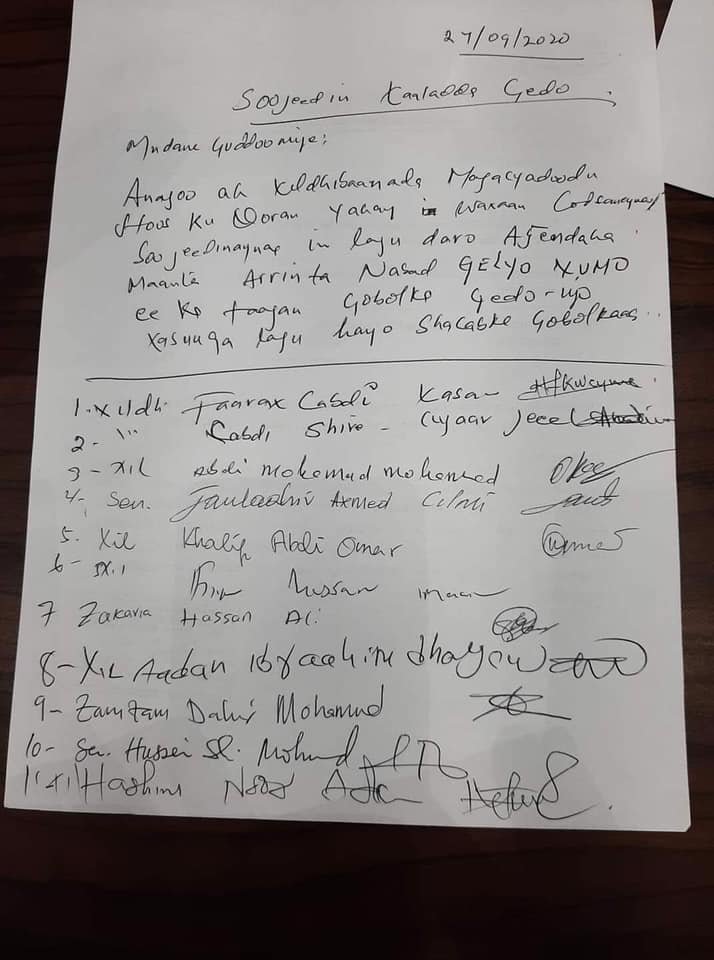 27/09/2020
Soojeedin Xaaladda Gedo.
Mudane Guddoomiye;
Anagoo ah Xildhibaanada Magacyadoodu
Hoos Ku Qoran Yahay waxaan Codsaneynaa
Soojeedinaynaa in lagu daro Ajendaha
Maanta Arrinta Nabad GELYO XUMO
ee ka taagan Gobolka Gedo - iyo
xasuuqa lagu hayo Shacabka Gobolkaas.
1. Xildh Faarax Cabdi Xasan
2 - " Cabdi Shire - Ciyaar Jecel
3 - Xil Abdi mohamed mohamed
4 - Sen. Axmed Cilmi
5. Xil Khalif Abdi Omar
6 - Xil Hussan
7 Zakaria Hassan Ali
8 - XiL Aadan Ibraahim
9 - Zamzam Dahir Mohamud
10 - Sen. Hussein Sh. Mohmud
11. Xil Hashim Noor Aden